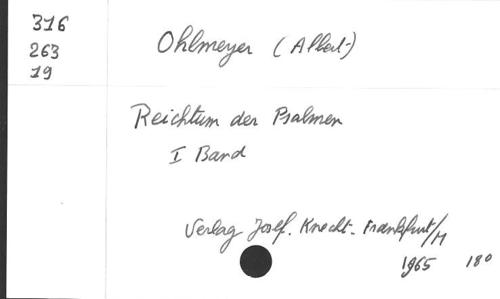 316
263
19
Ohlmeyer (Albert)
Reichtum der Psalmen
I Band
Verlag Josef. Knecht. Frankfurt/M
1965 18°